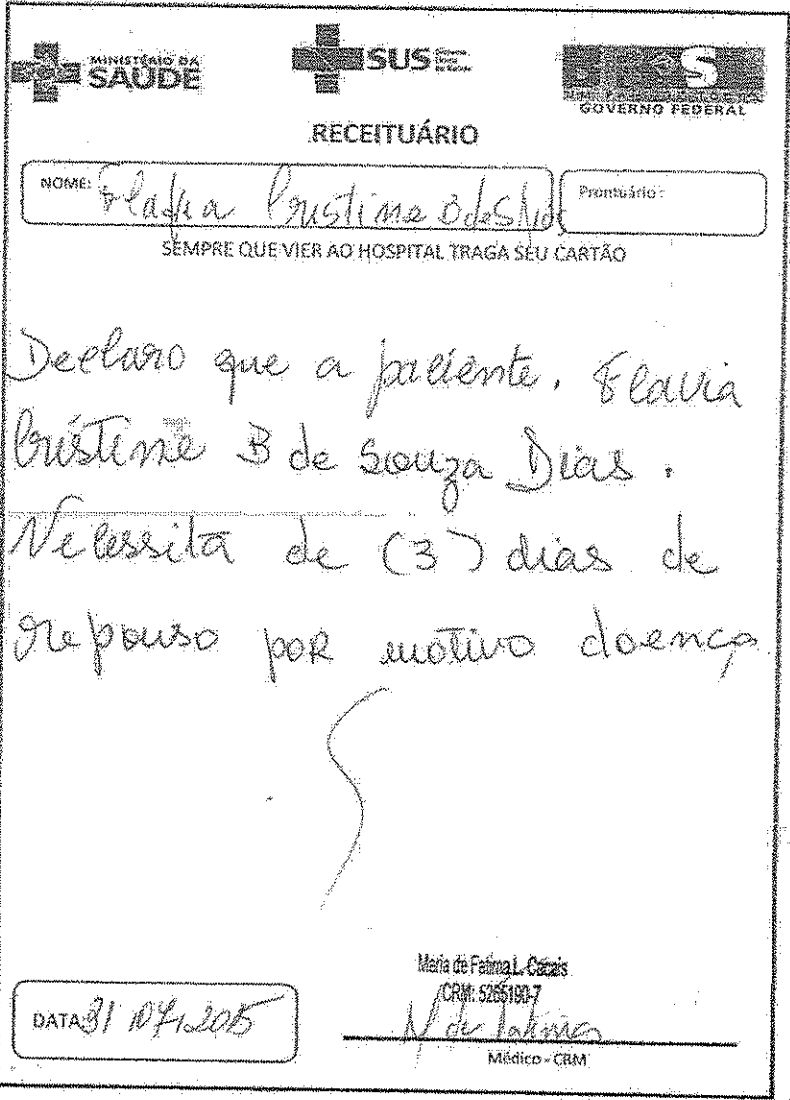 MINISTÉRIO DA
SAÚDE
SUS
GOVERNO FEDERAL
RECEITUÁRIO
NOME: Flavia Cristine B de S Dias
Prontuário:
SEMPRE QUE VIER AO HOSPITAL TRAGA SEU CARTÃO
Declaro que a paciente, Flavia
Cristine B de Souza Dias.
Necessita de (3) dias de
repouso por motivo doença
Maria de Fatima L. Cacais
CRM: 5265190-7
DATA: 31 07 2015
M de Fatima
Médico - CRM